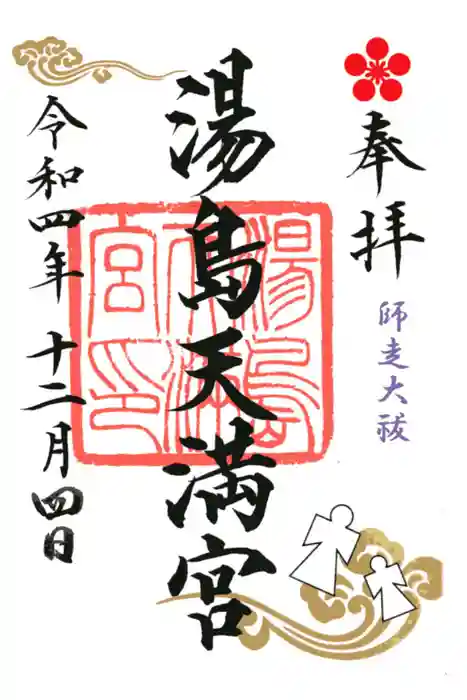 奉拝
師走大祓
湯島天満宮
湯島天満宮印
令和四年 十二月四日